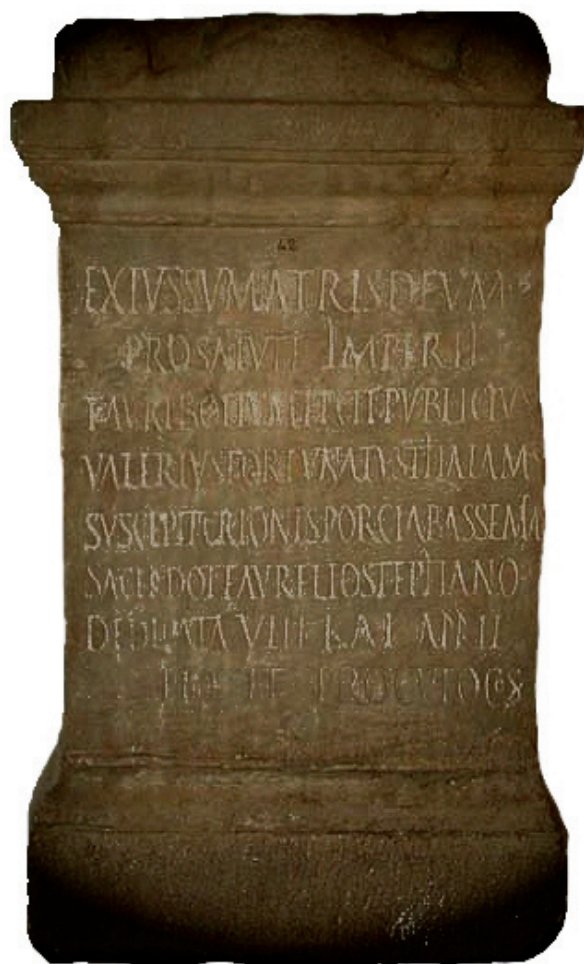 42
EX IVSSV MATRIS DEVM
PRO SALVTE IMPERII
TAVRIBOLIVM FECIT PVBLICIVS
VALERIVS FORTVNATVS THALAMAS
SVSCEPIT CRIONIS PORCIA BASSEMIA
SACERDOTE AVRELIO STEPHANO
DEDICATA VIII KAL APRIL
PIO ET PROCVLO COS